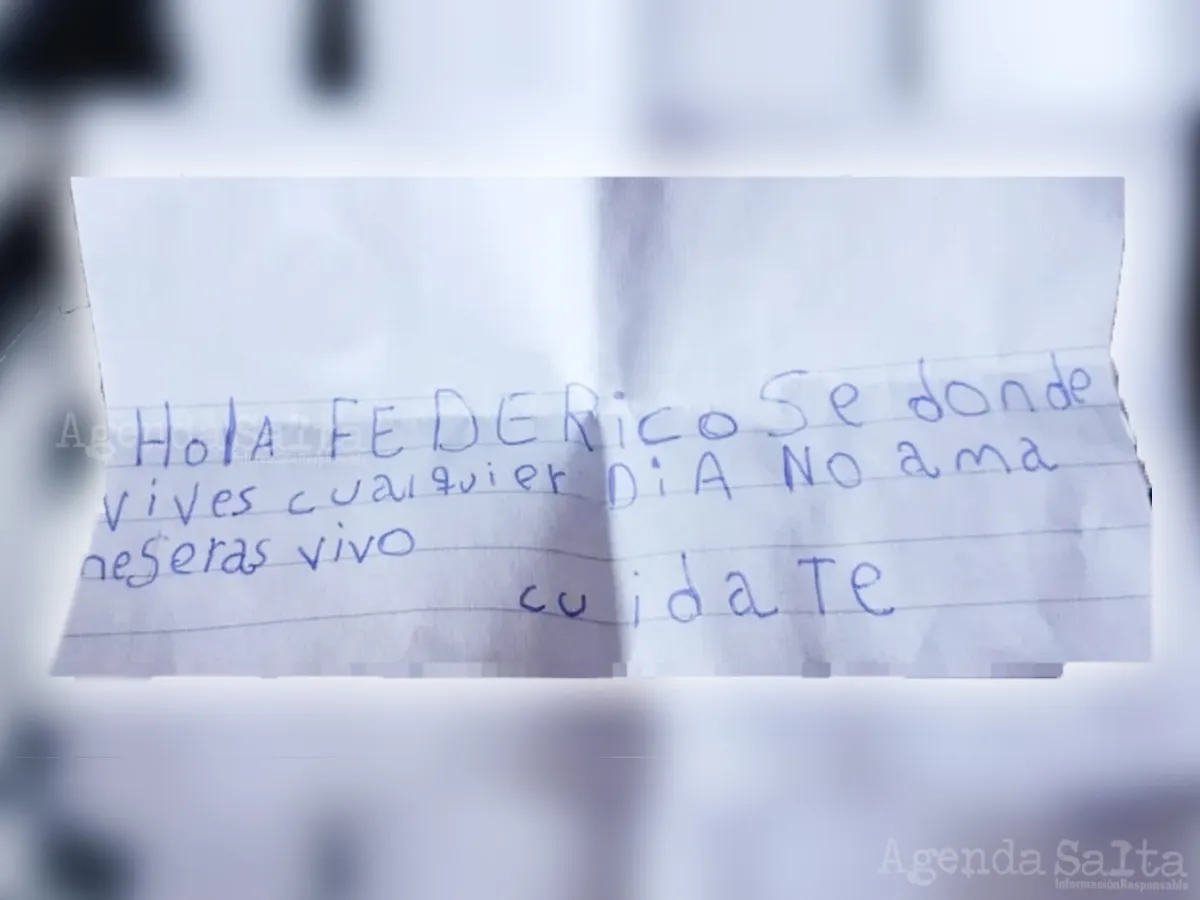 Hola FEDERico Se donde
vives cualquier DiA NO ama
neSeras vivo
cuidaTe
Agenda Salta
Agenda Salta
InformaciónResponsable